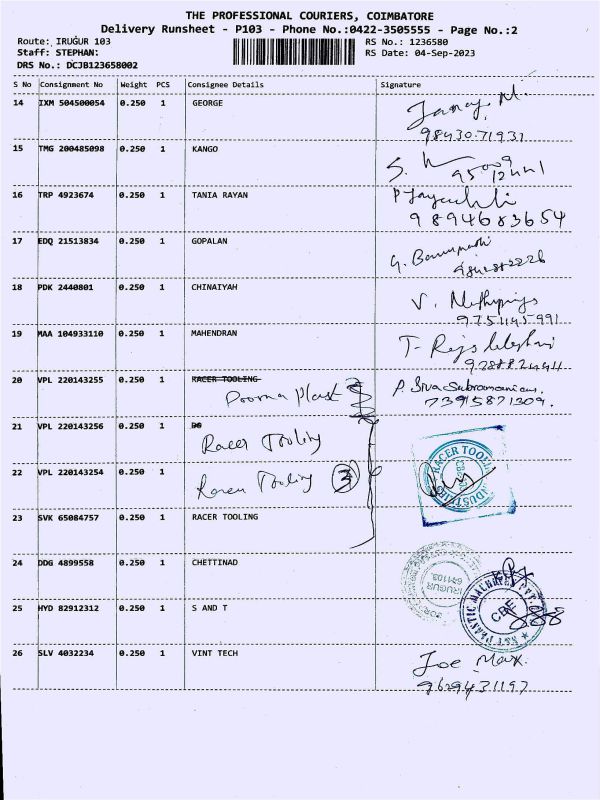 THE PROFESSIONAL COURIERS, COIMBATORE
Delivery Runsheet - P103 - Phone No.:0422-3505555 - Page No.:2
Route: IRUGUR 103 RS No.: 1236580
Staff: STEPHAN: RS Date: 04-Sep-2023
DRS No.: DCJB123658002
S No Consignment No Weight PCS Consignee Details Signature
14 IXM 504500054 0.250 1 GEORGE
98430.71931
15 TMG 200485098 0.250 1 KANGO
16 TRP 4923674 0.250 1 TANIA RAYAN
9894683654
17 EDQ 21513834 0.250 1 GOPALAN
18 PDK 2440801 0.250 1 CHINAIYAH
9751145991
19 MAA 104933110 0.250 1 MAHENDRAN
20 VPL 220143255 0.250 1 RACER TOOLING
P. Siva Subramanian.
7395871309.
21 VPL 220143256 0.250 1 DG
Racer Tooling
22 VPL 220143254 0.250 1 Racer Tooling 3
RACER TOOLING INDUSTRIES
23 SVK 65084757 0.250 1 RACER TOOLING
24 DDG 4899558 0.250 1 CHETTINAD
IRUGUR
641103.
25 HYD 82912312 0.250 1 S AND T
CBE
26 SLV 4032234 0.250 1 VINT TECH
Joe Max.
9629431197